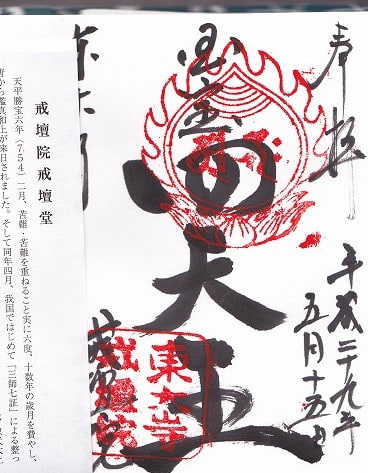 奉拝
平成二十九年
五月十五日
国宝
四天王
東大寺
戒壇院
東大寺
戒壇院
戒壇院戒壇堂
天平勝宝六年（754）二月、苦難・苦難を重ねること実に六度、十数年の歳月を費やし、
唐から鑑真和上が来日されました。そして同年四月、我国ではじめて「三師七証」による整っ